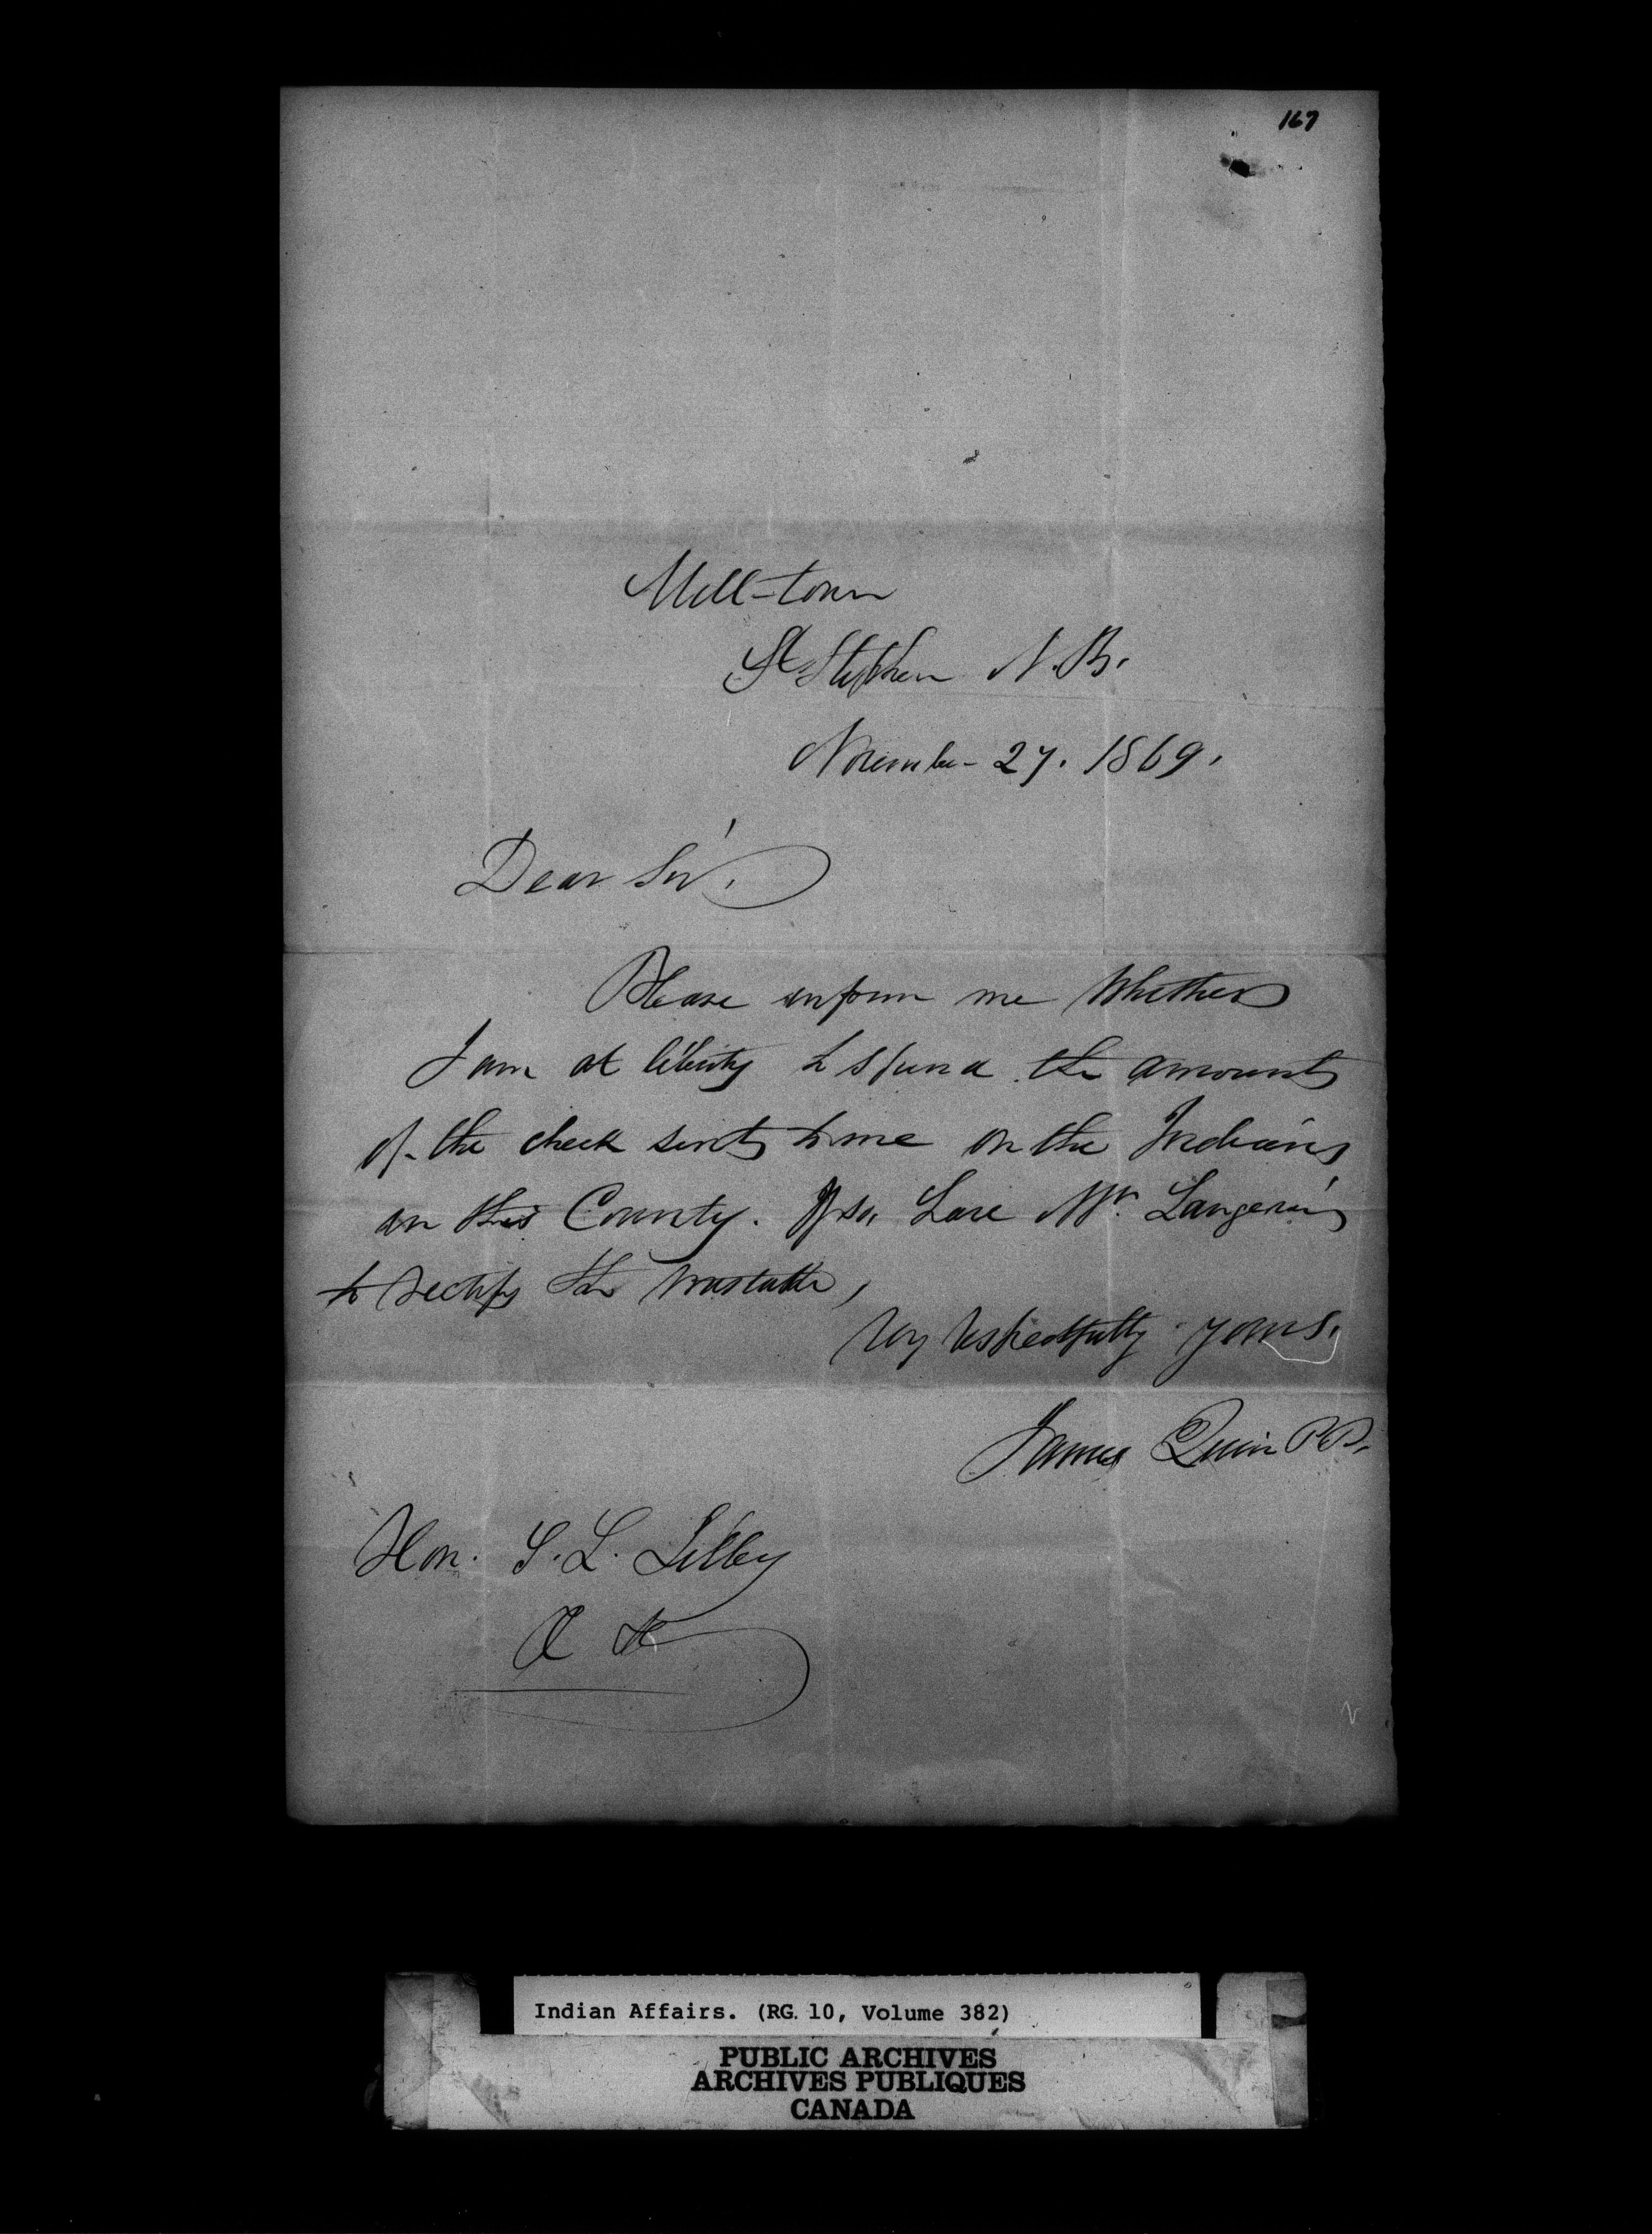 167
Mill-town
St Stephen N.B.
November 27. 1869.
Dear Sir,
Please inform me whether
I am at liberty to spend the amount
of the check sent to me on the Indians
in this County. If so, have Mr. Langevin
to rectify the mistake,
Very respectfully yours,
James Quin P.P.
Hon. S. L. Tilley
Indian Affairs. (RG. 10, Volume 382)
PUBLIC ARCHIVES
ARCHIVES PUBLIQUES
CANADA